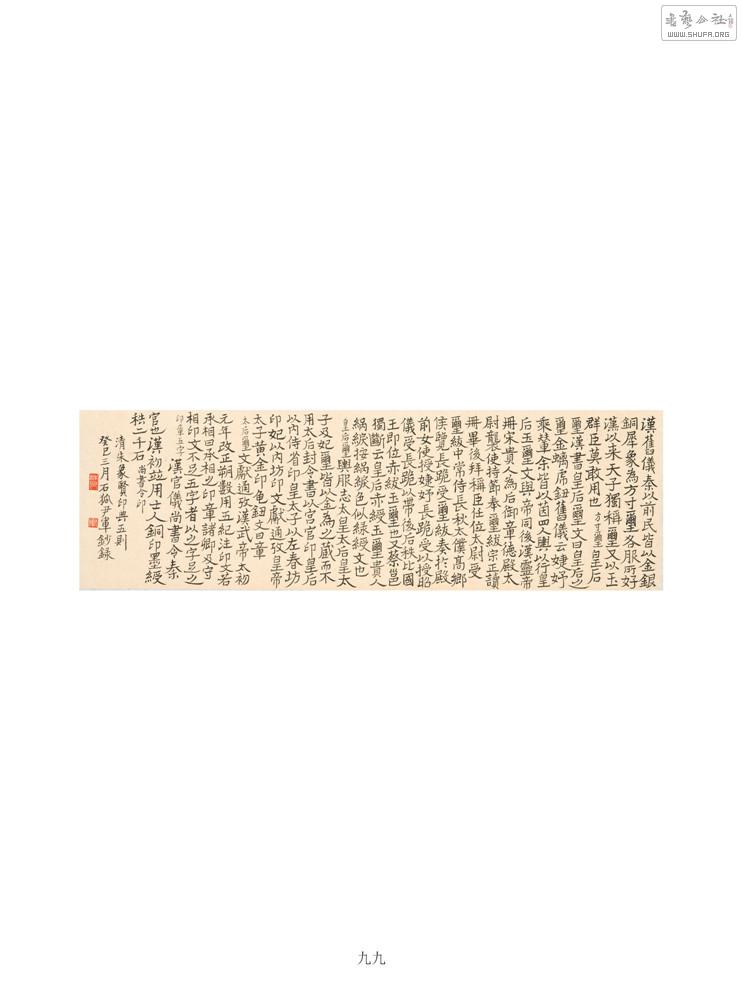 書藝公社
WWW.SHUFA.ORG
漢舊儀秦以前民皆以金銀
銅犀象為方寸璽各服所好
漢以來天子獨稱璽又以玉
群臣莫敢用也 方寸璽 皇后
璽漢書皇后璽文曰皇后之
璽金螭虎鈕舊儀云婕妤
乘輦余皆以茵四人輿以行皇
后玉璽文與帝同後漢靈帝
冊宋貴人為后御章德殿太
尉襲使持節奉璽紱宗正讀
冊畢後拜稱臣住位太尉受
璽紱中常侍長秋太僕高鄉
侯覽長跪受璽紱奏於殿
前女使授婕妤長跪受以授昭
儀受長跪以帶後后秩比國
王即位赤紱玉璽也又蔡邕
獨斷云皇后赤綬玉璽貴人
緺綟接緺綟色似綠綬文也
皇后璽 輿服志太皇太后皇太
子及妃璽皆以金為之藏而不
用太后封令書以宮官印皇后
以內侍省印皇太子以左春坊
印妃以內坊印文獻通攷皇帝
太子黃金印龜鈕文曰章
太后璽 文獻通攷漢武帝太初
元年改正朔數用五紀注印文若
丞相曰丞相之印章諸卿及守
相印文不足五字者以之字足之
印章五字 漢官儀尚書令秦
官也漢初竝用士人銅印墨綬
秩二千石 尚書令印
清朱象賢印典五則
癸巳三月石狐尹軍鈔錄
九九